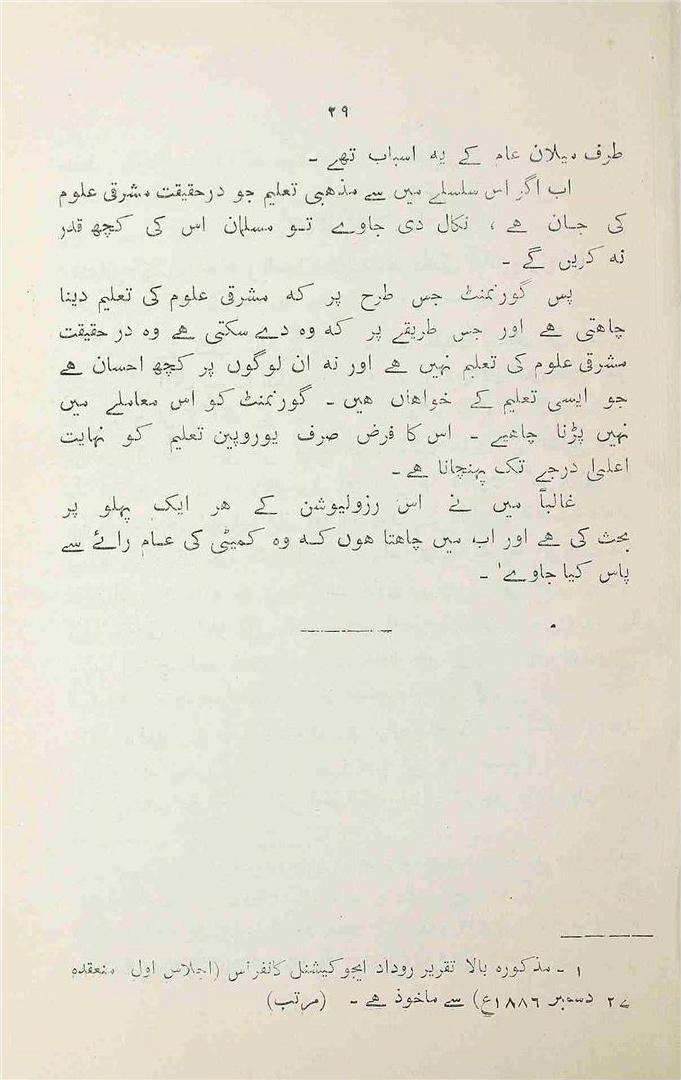 ۳۹
طرف میلان عام کے یہ اسباب تھے ۔
اب اگر اس سلسلے میں سے مذھبی تعلیم جو درحقیقت مشرقی علوم
کی جان ھے ، نکال دی جاوے تو مسلمان اس کی کچھ قدر
نہ کریں گے ۔
پس گورنمنٹ جس طرح پر کہ مشرقی علوم کی تعلیم دینا
چاھتی ھے اور جس طریقے پر کہ وہ دے سکتی ھے وہ در حقیقت
مشرقی علوم کی تعلیم نہیں ھے اور نہ ان لوگوں پر کچھ احسان ھے
جو ایسی تعلیم کے خواھاں ھیں ۔ گورنمنٹ کو اس معاملے میں
نہیں پڑنا چاھیے ۔ اس کا فرض صرف یوروپین تعلیم کو نہایت
اعلیٰ درجے تک پہنچانا ھے ۔
غالباً میں نے اس رزولیوشن کے ھر ایک پہلو پر
بحث کی ھے اور اب میں چاھتا ھوں کہ وہ کمیٹی کی عام رائے سے
پاس کیا جاوے' ۔
۱ ۔ مذکورہ بالا تقریر روداد ایجوکیشنل کانفرنس (اجلاس اول منعقدہ
۲۷ دسمبر ۱۸۸۶ع) سے ماخوذ ھے ۔ (مرتب)